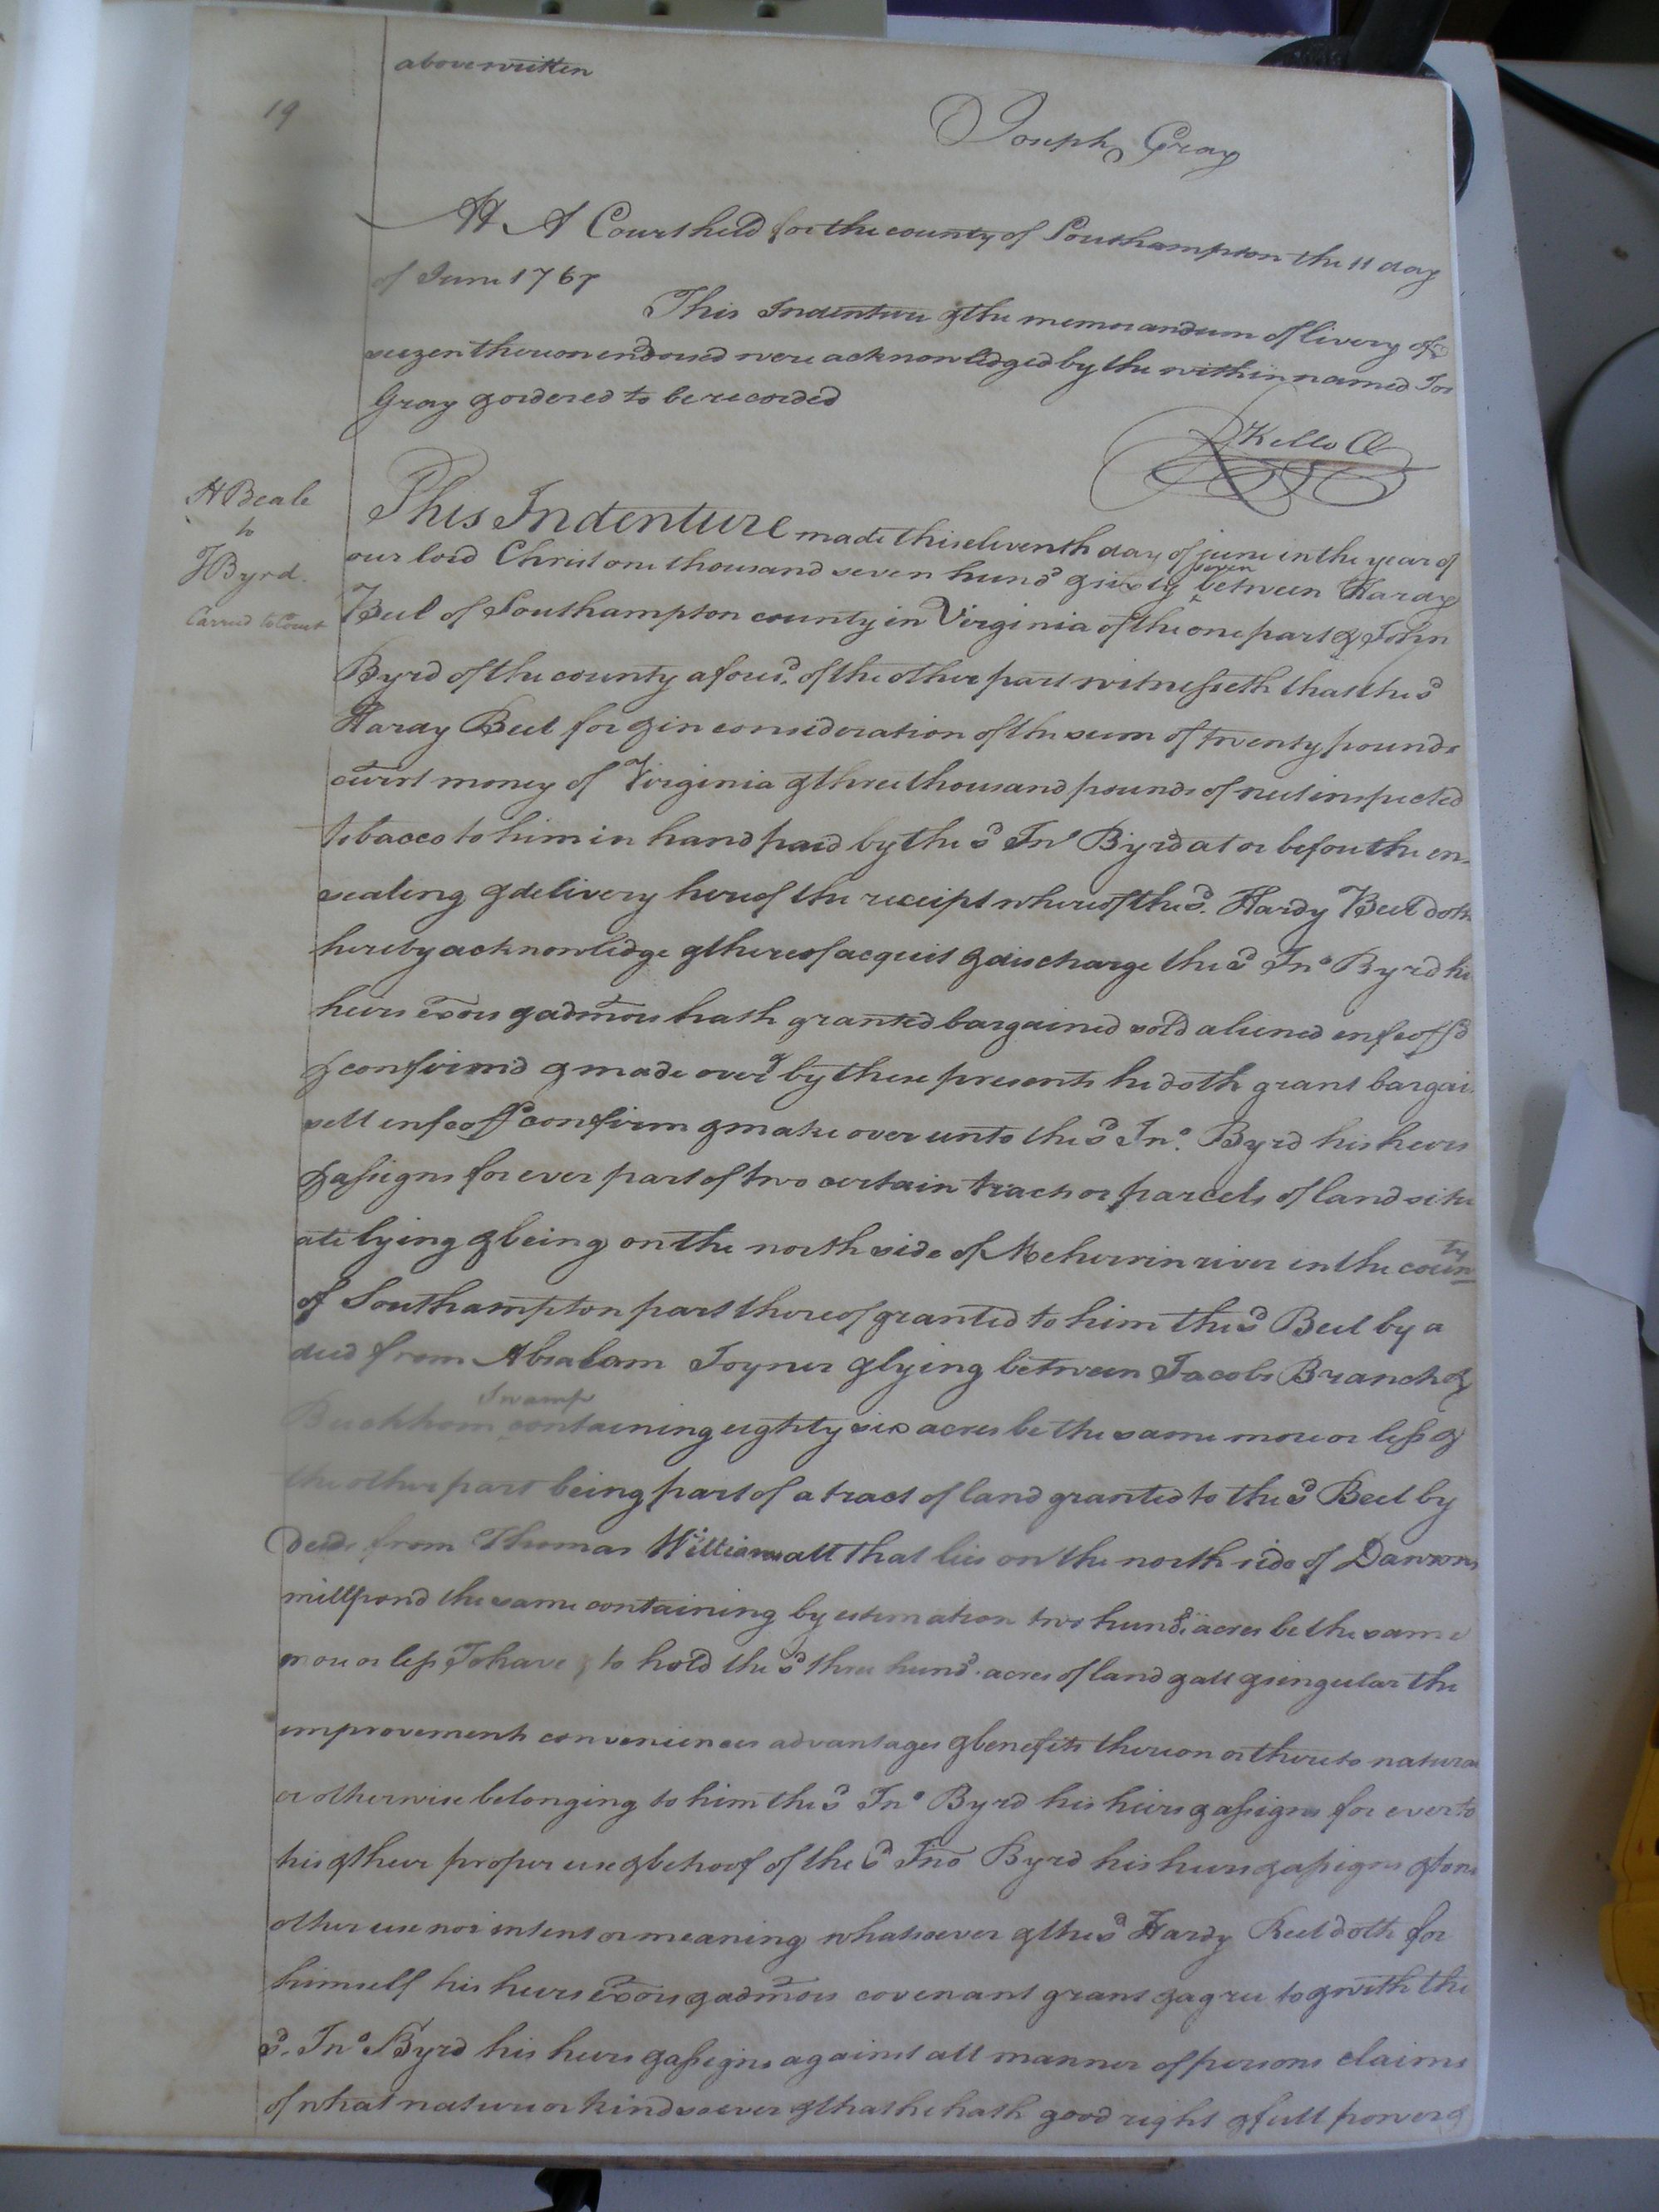 above written
19
Joseph Gray
At A Court held for the county of Southampton the 11 day
of June 1767
This Indenture & the memorandum of livery of
seizen thereon endorsed were acknowledged by the within named Jos
Gray & ordered to be recorded
R Kello Cl
H Beale
to
J Byrd.
Carried to Court
This Indenture made this eleventh day of june in the year of
our lord Christ one thousand seven hund.d & sixty seven between Hardy
Beel of Southampton county in Virginia of the one part & John
Byrd of the county afores.d of the other part witnesseth that the s.d
Hardy Beel for & in consideration of the sum of twenty pounds
curr.t money of Virginia & three thousand pounds of neet inspected
tobacco to him in hand paid by the s.d Jn.o Byrd at or before the en-
sealing & delivery hereof the receipt whereof the s.d Hardy Beel doth
hereby acknowledge & thereof acquit & discharge the s.d Jn.o Byrd his
heirs exors & admors hath granted bargained sold aliened enfeoff'd
& confirm'd & made over & by these presents he doth grant bargain
sell enfeoff confirm & make over unto the s.d Jn.o Byrd his heirs
& assigns for ever part of two certain tracts or parcels of land situ
ate lying & being on the north side of Meherrin river in the county
of Southampton part thereof granted to him the s.d Beel by a
deed from Absalam Joyner & lying between Jacobs Branch &
Buckhorn Swamp containing eighty six acres be the same more or less &
the other part being part of a tract of land granted to the s.d Beel by
deeds from Thomas Williams all that lies on the north side of Dawsons
millpond the same containing by estimation two hund.d acres be the same
more or less To have & to hold the s.d three hund.d acres of land & all & singular the
improvements conveniences advantages & benefits thereon or thereto natural
or otherwise belonging to him the s.d Jn.o Byrd his heirs & assigns for ever to
his & their proper use & behoof of the s.d Jno Byrd his heirs & assigns & to no
other use nor intent or meaning whatsoever & the s.d Hardy Beel doth for
himself his heirs exors & admors covenant grant & agree to & with the
s.d Jn.o Byrd his heirs & assigns against all manner of persons claims
of what nature or kind soever & that he hath good right & full power &